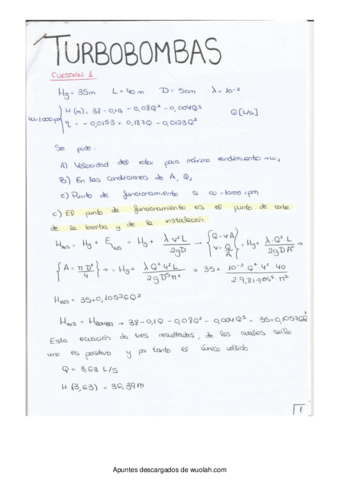 TURBOBOMBAS
CUESTIÓN 1
Hg = 35m L = 40 m D = 5cm λ = 10⁻²
H (m) = 38 - 0,1Q - 0,08Q² - 0,004Q³ Q [L/s]
η = - 0,0153 + 0,187Q - 0,0123Q²
Se pide:
A) Velocidad del rotor para máximo rendimiento → ω,
B) En las condiciones de A, Q,
c) Punto de funcionamiento si ω = 1000 rpm
c) El punto de funcionamiento es el punto de corte
de la bomba y de la instalación
H = Hg + E = Hg + λv²L/2gD → {Q = vA, v = Q/A} , Hg + λ·Q²·L/2gDA²
{A = πD²/4} → Hg + λQ²4²L/2gD⁵π² = 35 + 10⁻² Q² 4² 40/2·9,81·0,05⁵·π²
35 + 0,10576Q²
38 - 0,1Q - 0,08Q² - 0,004Q³ = 35 + 0,10576Q²
Esta ecuación da tres resultados, de los cuales solo
uno es positivo y por tanto el único válido
Q = 3,63 L/s
H (3,63) = 36,39 m
1
Apuntes descargados de wuolah.com